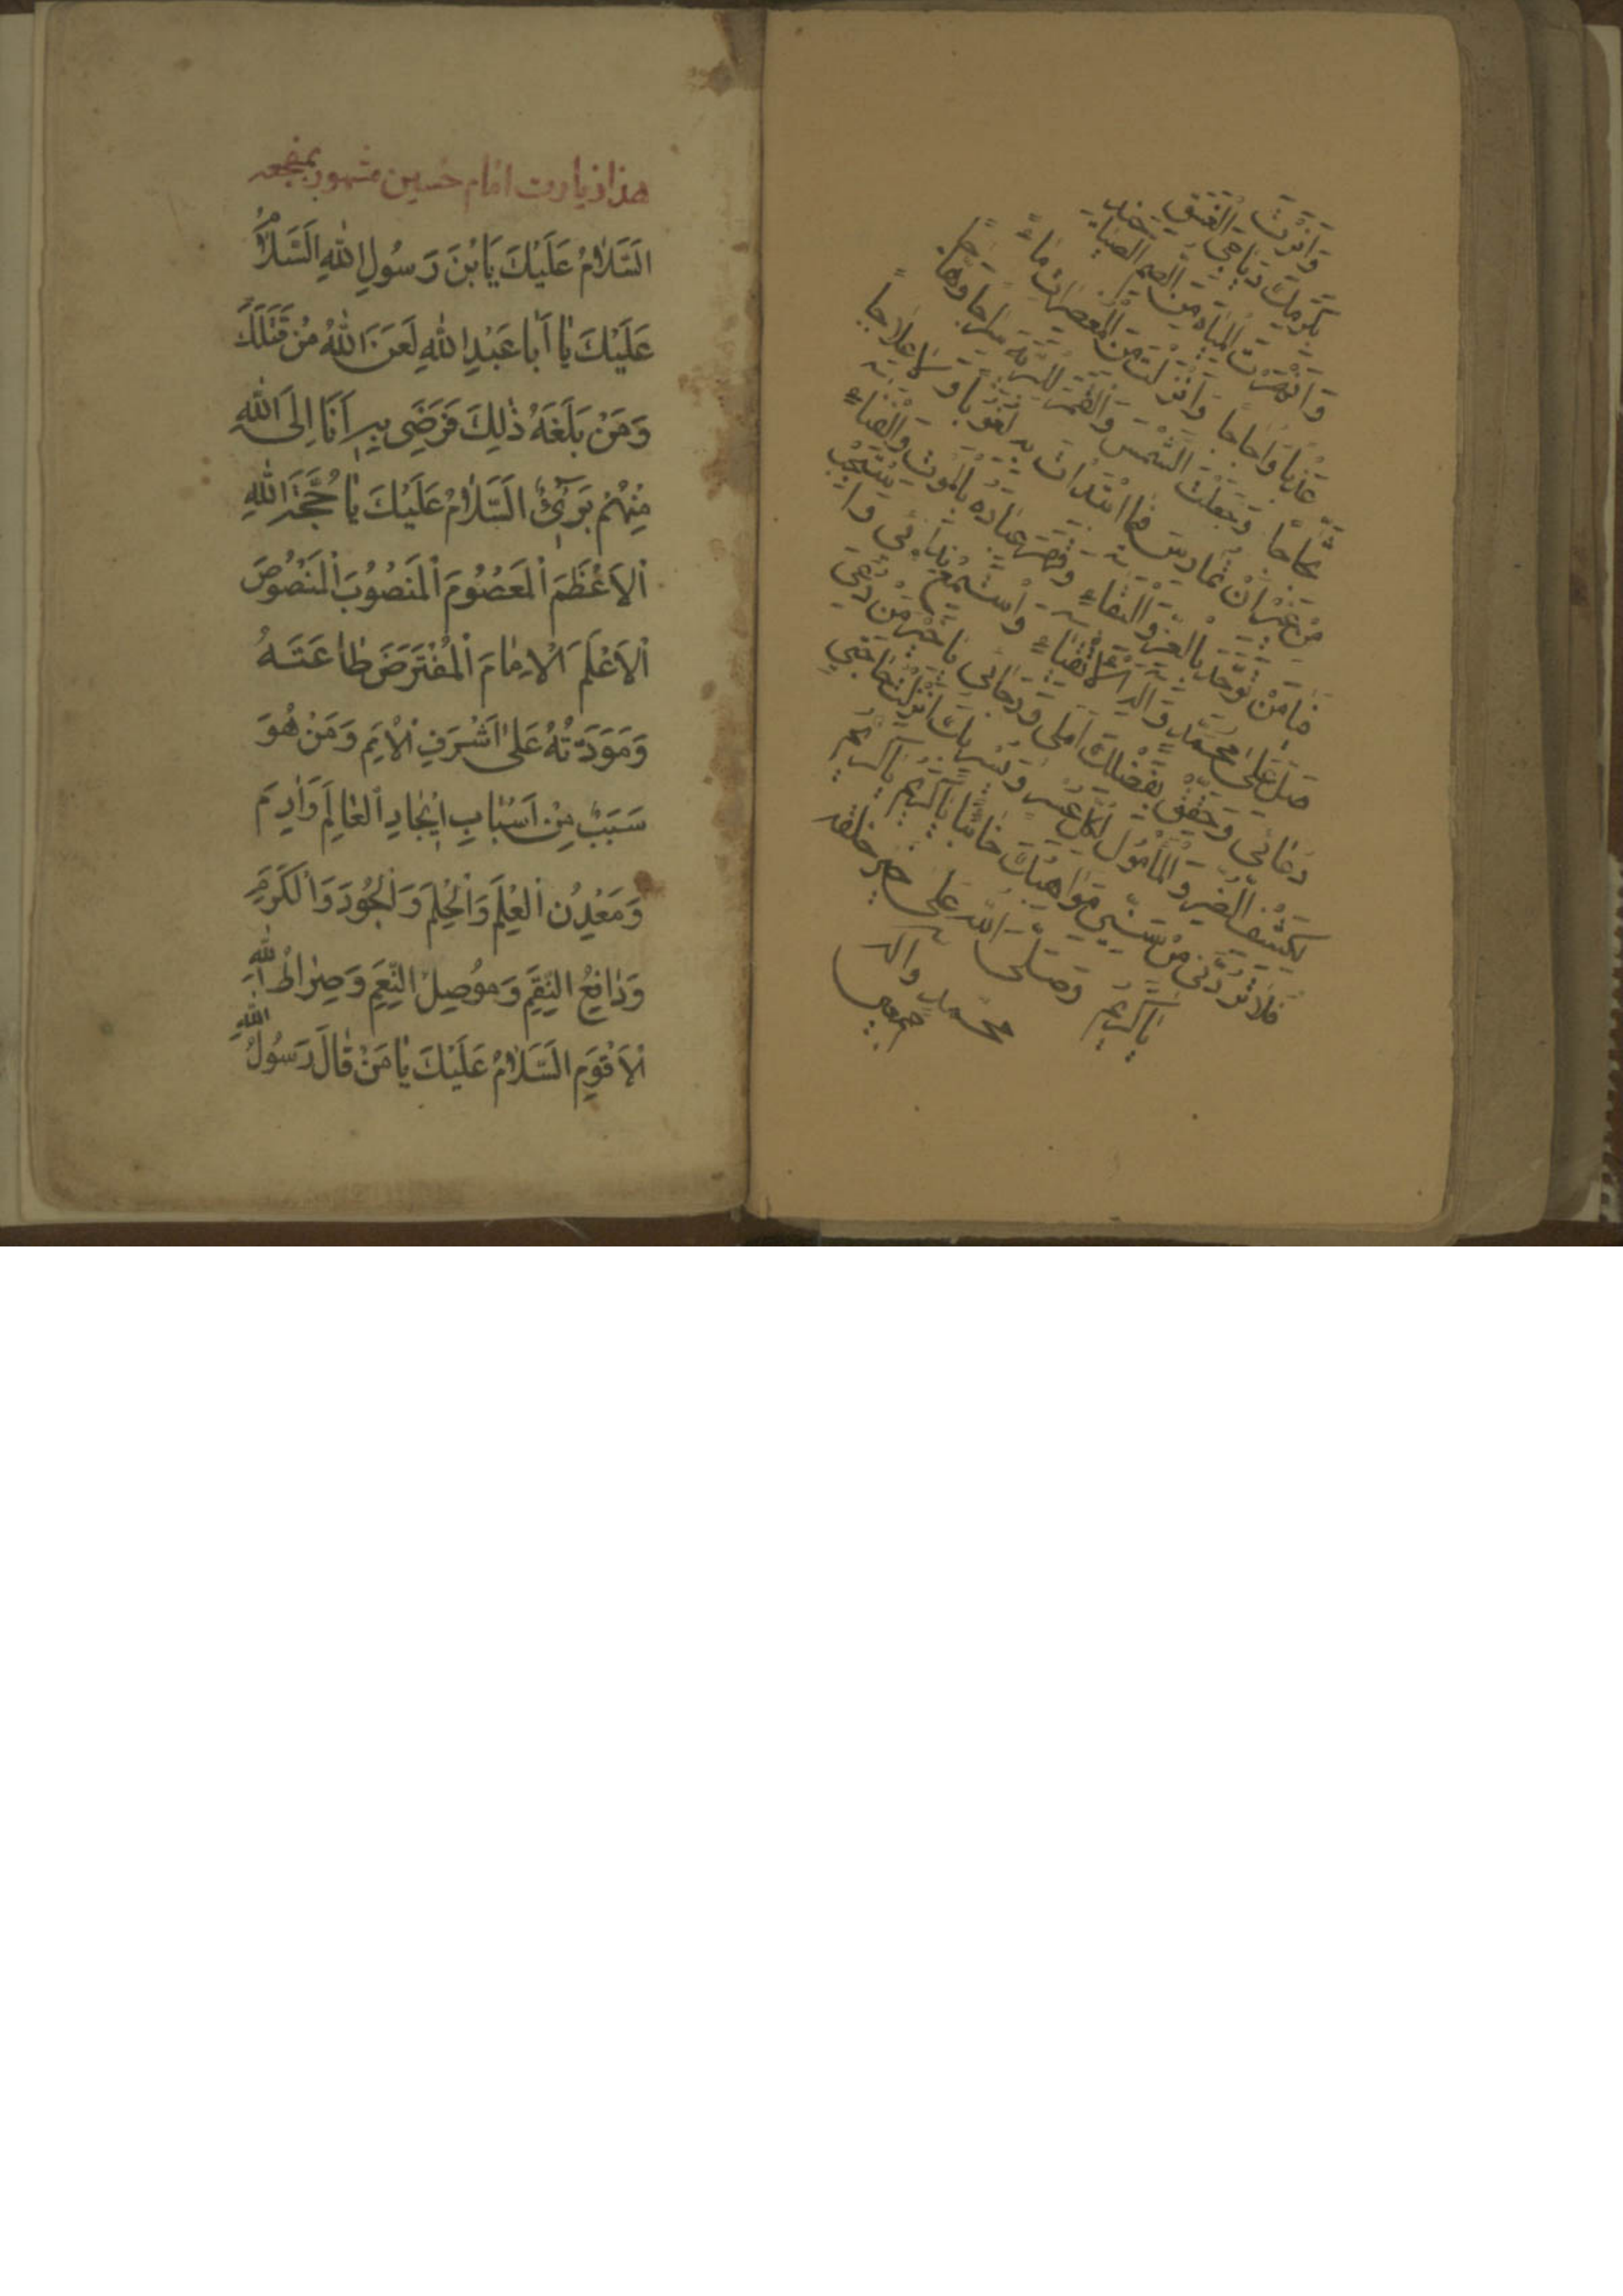 وَاَنَرْتَ
بِكَرَمِكَ دَيَاجِيَ الْغَسَقِ
وَاَنْهَرْتَ الْمِيَاهَ مِنَ الصُّمِّ الصَّيَاخِيدِ
عَذْبًا وَاُجَاجًا وَاَنْزَلْتَ مِنَ الْمُعْصِرَاتِ مَاءً
ثَجَّاجًا وَجَعَلْتَ الشَّمْسَ وَالْقَمَرَ لِلْبَرِيَّةِ سِرَاجًا وَهَّاجًا
مِنْ غَيْرِ اَنْ تُمَارِسَ فِيمَا ابْتَدَأْتَ بِهِ لُغُوبًا وَلَا عِلَاجًا
فَيَا مَنْ تَوَحَّدَ بِالْعِزِّ وَالْبَقَاءِ وَقَهَرَ عِبَادَهُ بِالْمَوْتِ وَالْفَنَاءِ
صَلِّ عَلَى مُحَمَّدٍ وَآلِهِ الْاَتْقِيَاءِ وَاسْتَمِعْ نِدَائِي وَاسْتَجِبْ
دُعَائِي وَحَقِّقْ بِفَضْلِكَ اَمَلِي وَرَجَائِي يَا خَيْرَ مَنْ دُعِيَ
لِكَشْفِ الضُّرِّ وَالْمَأْمُولِ لِكُلِّ عُسْرٍ وَيُسْرٍ بِكَ اَنْزَلْتُ حَاجَتِي
فَلَا تَرُدَّنِي مِنْ سَنِيِّ مَوَاهِبِكَ خَائِبًا يَا كَرِيمُ يَا كَرِيمُ
يَا كَرِيمُ وَصَلَّى اللهُ عَلَى خَيْرِ خَلْقِهِ
مُحَمَّدٍ وَآلِهِ
اجمعين
هذا زيارت امام حسين مشهور بمفجعه
اَلسَّلَامُ عَلَيْكَ يَا بْنَ رَسُولِ اللهِ اَلسَّلَامُ
عَلَيْكَ يَا اَبَا عَبْدِ اللهِ لَعَنَ اللهُ مَنْ قَتَلَكَ
وَمَنْ بَلَغَهُ ذٰلِكَ فَرَضِيَ بِهِ اَنَا اِلَى اللهِ
مِنْهُمْ بَرِيءٌ اَلسَّلَامُ عَلَيْكَ يَا حُجَّةَ اللهِ
الْاَعْظَمَ الْمَعْصُومَ الْمَنْصُوبَ الْمَنْصُوصَ
الْاَعْلَمَ الْاِمَامَ الْمُفْتَرَضَ طَاعَتَهُ
وَمَوَدَّتُهُ عَلَى اَشْرَفِ الْاُمَمِ وَمَنْ هُوَ
سَبَبٌ مِنْ اَسْبَابِ اِيجَادِ الْعَالَمِ وَآدَمَ
وَمَعْدِنُ الْعِلْمِ وَالْحِلْمِ وَالْجُودِ وَالْكَرَمِ
وَدَافِعُ النِّقَمِ وَمُوصِلُ النِّعَمِ وَصِرَاطُ اللهِ
الْاَقْوَمِ اَلسَّلَامُ عَلَيْكَ يَا مَنْ قَالَ رَسُولُ اللهِ